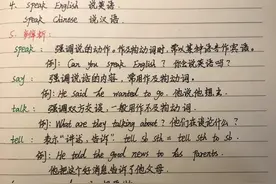 4. speak English 说英语
speak Chinese 说汉语
5. 辨析
speak: 强调说的动作,作及物动词时,常以某种语言作宾语。
例: Can you speak English? 你会说英语吗?
say: 强调说话的内容,常用作及物动词。
例: He said he wanted to go. 他说,他想去。
talk: 强调双方交谈,一般用作不及物动词。
例: What are they talking about? 他们在谈论什么?
tell: 表示“讲述,告诉” tell sb sth = tell sth to sb.
例: He told the good news to his parents.
他把这个好消息告诉了他父母。